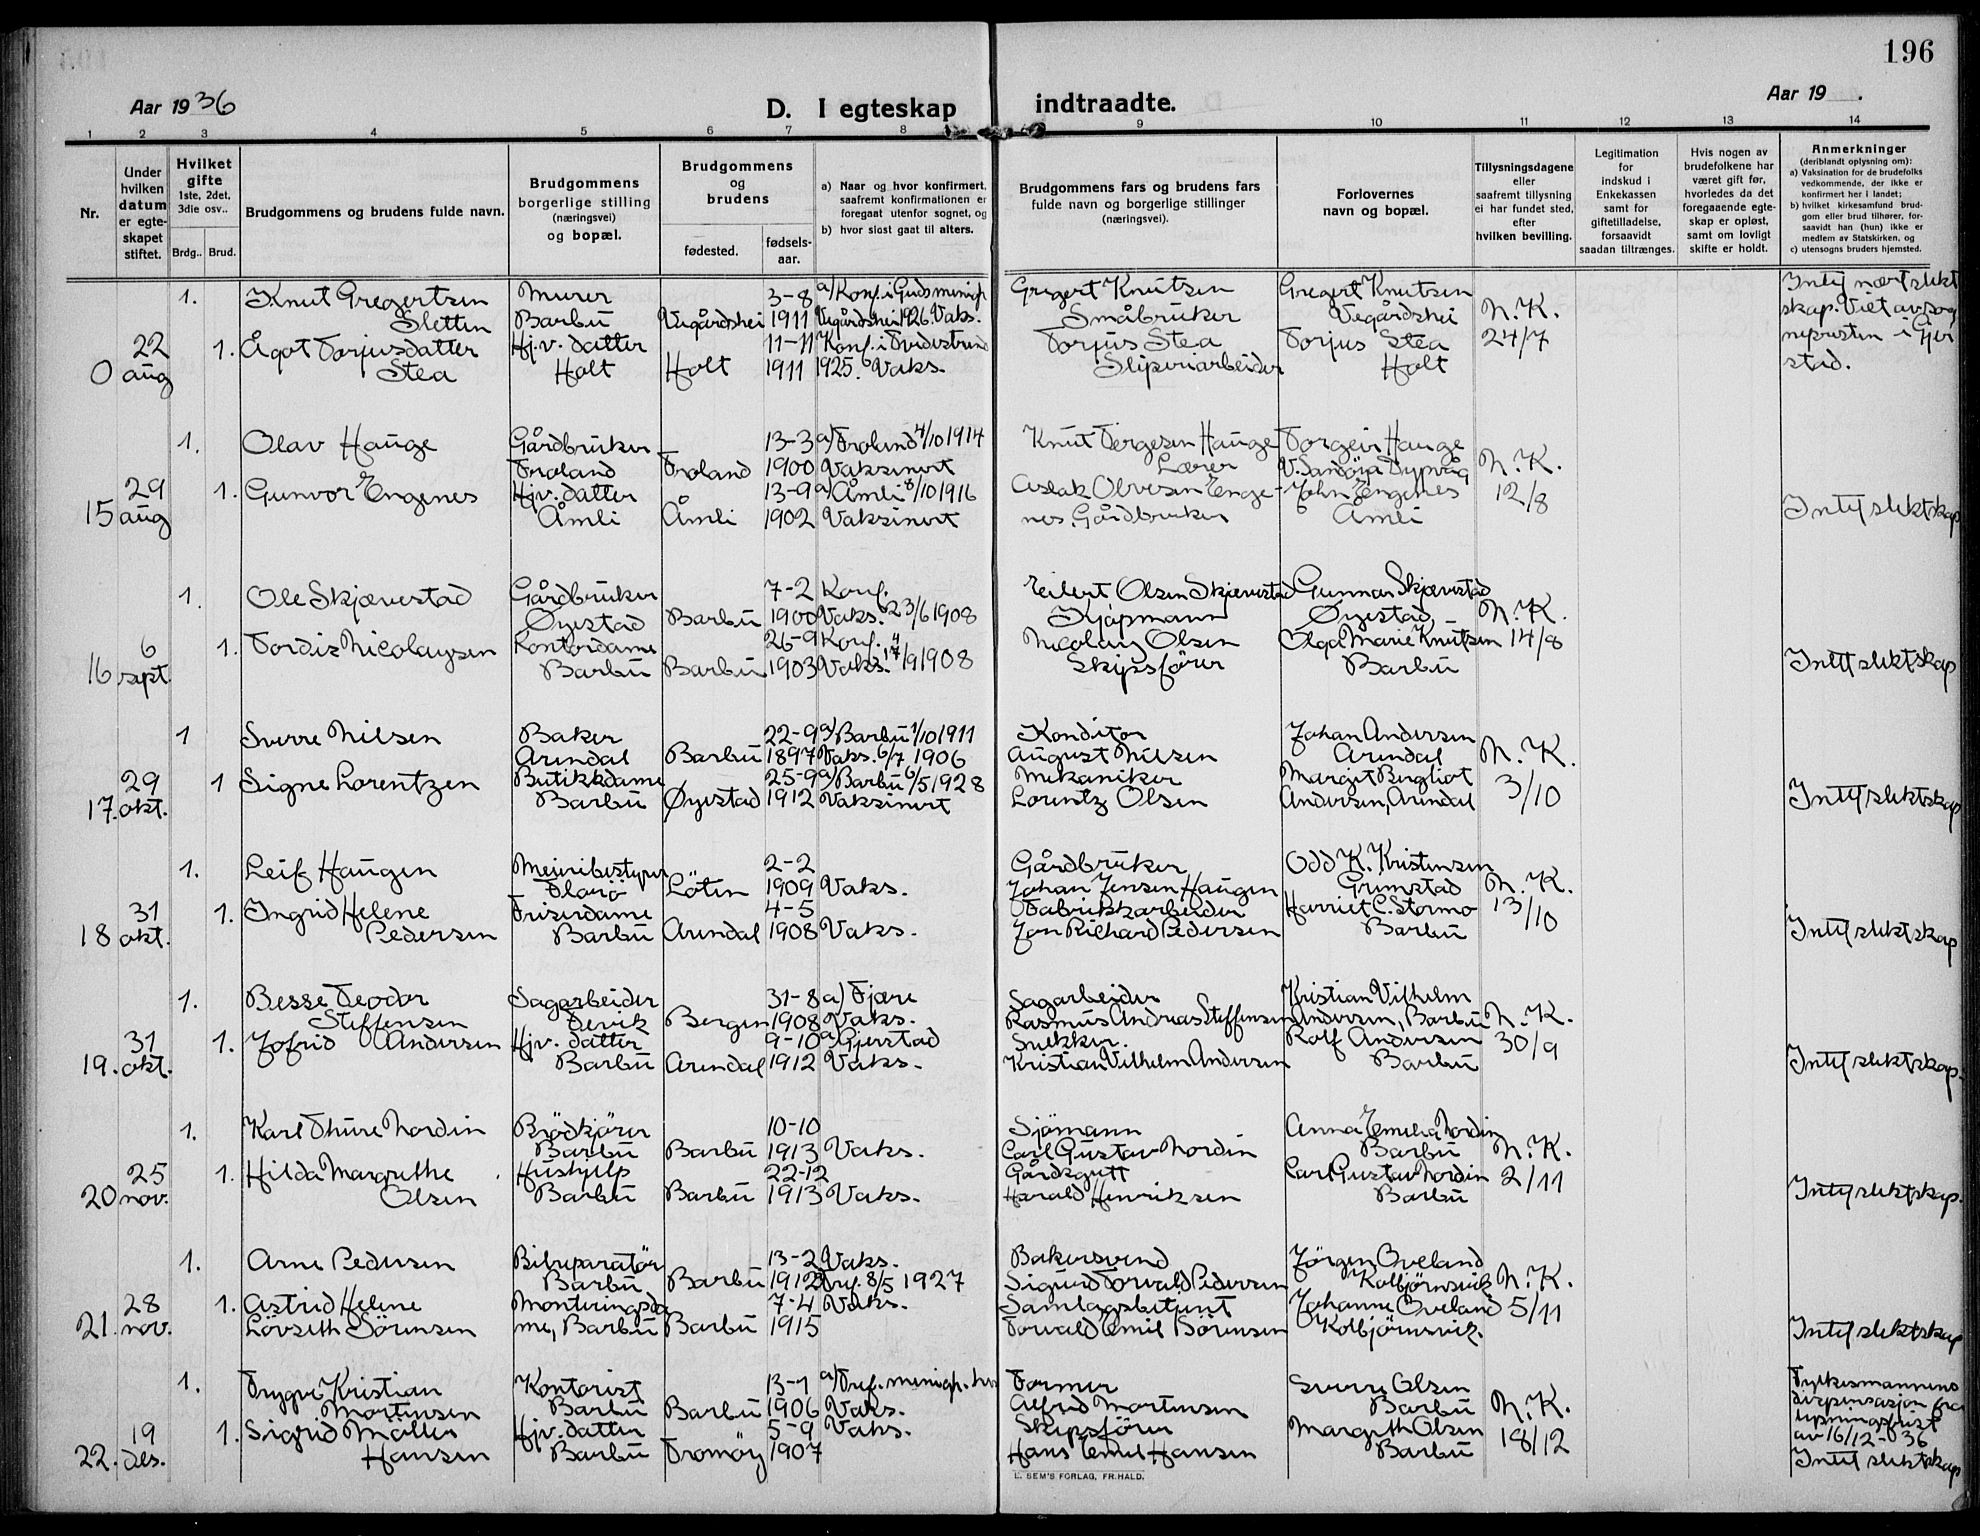 196
Aar 1936
D. I egteskap indtraadte.
Aar 19 .
1 2 3 4 5 6 7 8 9 10 11 12 13 14
Nr.
Under hvilken datum er egteskapet stiftet.
Hvilket gifte 1ste, 2det, 3die osv..
Brdg.. Brud.
Brudgommens og brudens fulde navn.
Brudgommens borgerlige stilling (næringsvei) og bopæl.
Brudgommens og brudens
fødested. fødsels-aar.
a) Naar og hvor konfirmert, saafremt konfirmationen er foregaat utenfor sognet, og
b) hvor sidst gaat til alters.
Brudgommens fars og brudens fars fulde navn og borgerlige stillinger (næringsvei).
Forlovernes navn og bopæl.
Tillysningsdagene eller saafremt tillysning ei har fundet sted, efter hvilken bevilling.
Legitimation for indskud i Enkekassen samt for giftetilladelse, forsaavidt saadan tiltrænges.
Hvis nogen av brudefolkene har været gift før, hvorledes da det foregaaende egteskap er opløst, samt om lovligt skifte er holdt.
Anmerkninger (deriblandt oplysning om):
a) Vaksination for de brudefolks vedkommende, der ikke er konfirmert her i landet;
b) hvilket kirkesamfund brudgom eller brud tilhører, forsaavidt han (hun) ikke er medlem av Statskirken, og
c) utensogns bruders hjemsted.
1. Knut Gregertsen Murer 3-8 a/Konf. i Gudsmenigh Gregert Knutsen Gregert Knutsen Intet nært slekt
Sletten Barbu Vegårdshei 1911 Vegårdshei 1926. Vaks. Småbruker Vegårdshei N.K. skap. Viet av sog
22 1. Ågot Torjusdatter Hj.v. datter 11-11 Konf. i Tvedestrand Torjus Stea Torjus Stea 24/7 nepresten i Gjer
0 aug Stea Holt Holt 1911 1925. Vaks. Sliperiarbeider Holt stad.
1. Olav Hauge Gårdbruker 13-3 a/Froland 4/10 1914 Knut Tergesen Hauge Torgeir Hauge
Froland Froland 1900 Vaksinert Lærer V. Sandøya Dypvåg N.K.
29 1. Gunvor Engenes Hjv. datter 13-9 a/Åmli 8/10 1916 Aslak Olvesen Enge- John Engenes 12/8
15 aug Åmli Åmli 1902 Vaksinert nes, Gårdbruker Åmli Intet slektskap
1. Ole Skjævestad Gårdbruker 7-2 Konf. Eilert Olsen Skjævestad Gunnar Skjævestad
Øyestad Barbu 1900 Vaks. 23/6 1908 Kjøpmann Øyestad N.K.
6 1. Tordis Nicolaysen Kontordame 26-9 Konf. Nicolay Olsen Olga Marie Knutsen 14/8
16 sept. Barbu Barbu 1903 Vaks. 17/9 1908 Skipsfører Barbu Intet slektskap
1 Sverre Nilsen Baker 22-9 a/Barbu 1/10 1911 Konditor Johan Andersen
Arendal Barbu 1897 Vaks. 6/7 1906 August Nilsen Arendal N.K.
29 1 Signe Lorentzen Butikkdame 25-9 a/Barbu 6/5 1928 Mekaniker Margit Bergliot 3/10
17. okt. Barbu Øyestad 1912 Vaksinert Lorentz Olsen Andersen, Arendal Intet slektskap
1. Leif Haugen Meieribestyrer 2-2 Gårdbruker Odd K. Kristensen
Løten 1909 Vaks. Johan Jensen Haugen Grimstad N.K.
31 1. Ingrid Helene Friserdame 4-5 Fabrikkarbeider Harriet C. Stormo 13/10
18 okt. Pedersen Barbu Arendal 1908 Vaks. Jon Richard Pedersen Barbu Intet slektskap
1. Besse Teodor Sagarbeider 31-8 a) Fjære Sagarbeider Kristian Vilhelm
Steffensen Fevik Bergen 1908 Vaks. Rasmus Andreas Steffensen Andersen, Barbu N.K.
31 1. Jofrid Andersen Hjv. datter 9-10 a/Gjerstad Snekker. Rolf Andersen 30/9
19. okt. Barbu Arendal 1912 Vaks. Kristian Vilhelm Andersen Barbu Intet slektskap.
1. Karl Thure Nordin Brødkjører 10-10 Sjømann Anna Emelia Nordin
Barbu Barbu 1913 Vaks. Carl Gustav Nordin Barbu N.K.
25 1. Hilda Margrethe Hushjelp 22-12 Gårdsgutt Carl Gustav Nordin 2/11
20 nov. Olsen Barbu Barbu 1913 Vaks. Harald Henriksen Barbu Intet slektskap.
1. Arne Pedersen Bilreparatør 13-2 Vaks. Bakersvend Jørgen Oveland
Barbu Barbu 1912 8/5 1927 Sigurd Torvald Pedersen Kolbjørnsvik N.K.
28 1. Astrid Helene Monteringsda 7-4 Vaks. Samlagsbetjent Johanne Oveland 5/11
21. nov. Løvseth Sørensen me, Barbu Barbu 1915 Torvald Emil Sørensen Kolbjørnsvik. Intet slektskap
1. Trygve Kristian Kontorist 13-1 a/Fref. menigh. her Former Sverre Olsen Fylkesmannens
Mortensen Barbu Barbu 1906 Vaks. Alfred Mortensen Barbu N.K. dispensasjon fra
19 1. Sigrid Møller Hjv. datter 5-9 Vaks. Skipsfører Margreth Olsen 18/12 lysningsfrist av 16/12-36
22. des. Hansen Barbu Tromøy 1907 Hans Emil Hansen Barbu Intet slektskap
L. SEM'S FORLAG, FR.HALD.